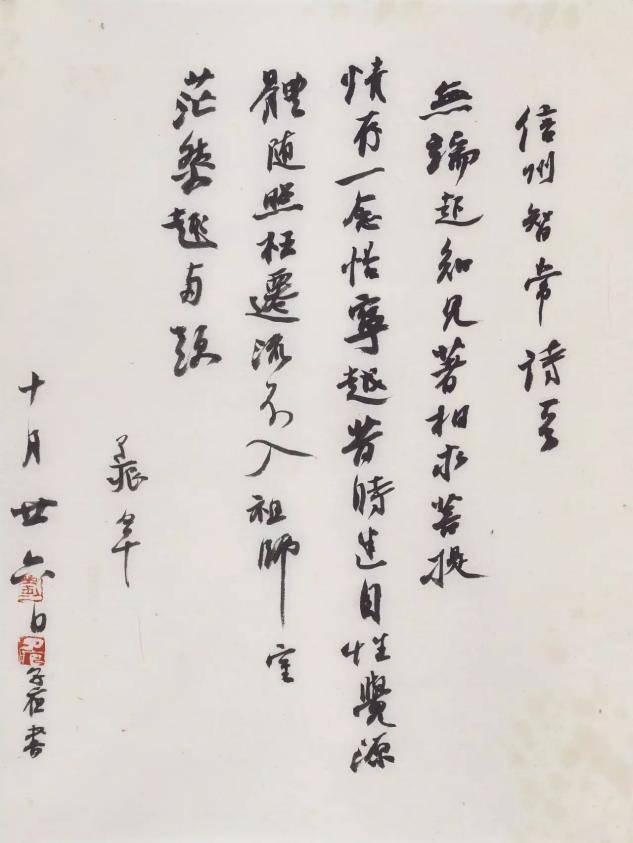 信州智常诗云
無端起知見著相求菩提
情存一念悟寧越昔時迷自性覺源
體随照枉遷流不入祖師室
茫然趣兩頭
十月廿六日
書